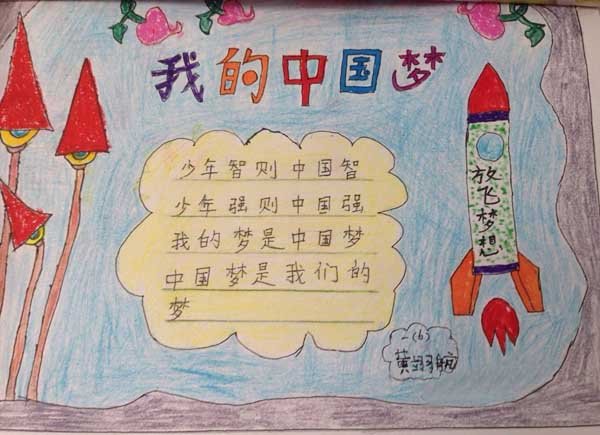 我的中国梦
少年智则中国智
少年强则中国强
我的梦是中国梦
中国梦是我们的
梦
放飞梦想
二(6)
黄羽航